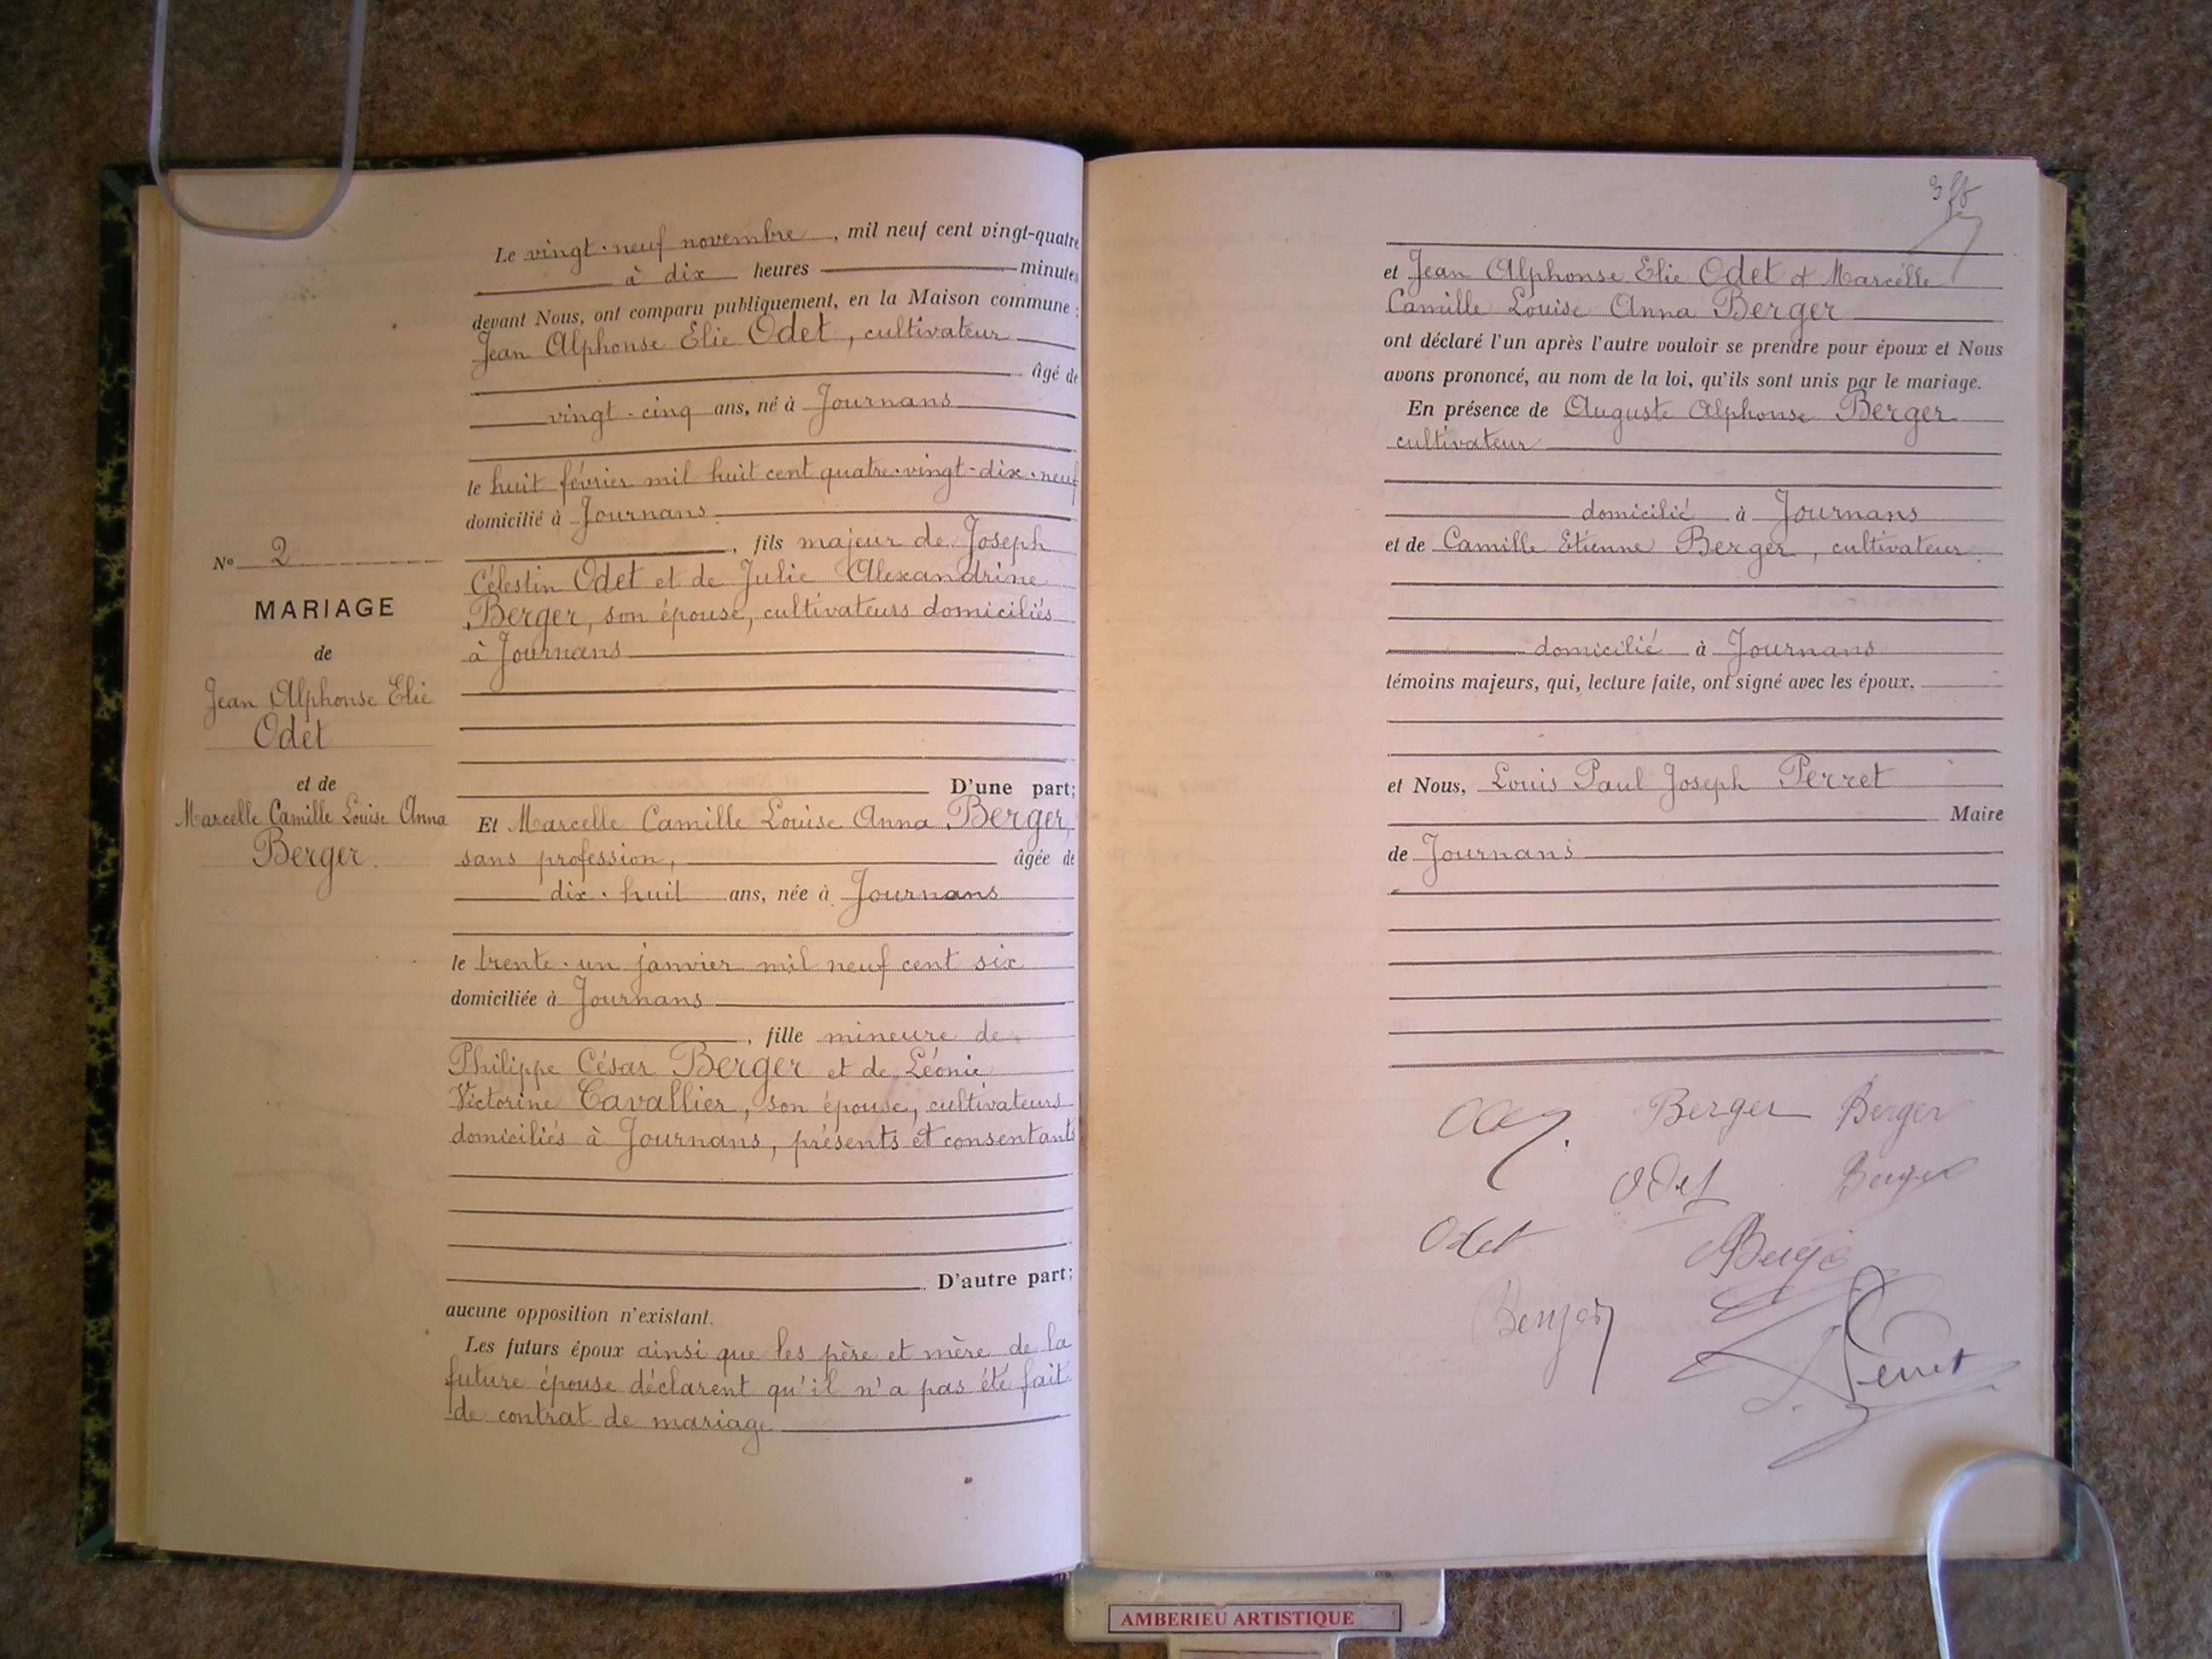 Le vingt-neuf novembre, mil neuf cent vingt-quatre
à dix heures minutes
devant Nous, ont comparu publiquement, en la Maison commune :
Jean Alphonse Elie Odet, cultivateur
âgé de
vingt-cinq ans, né à Journans
le huit février mil huit cent quatre-vingt-dix-neuf
domicilié à Journans
, fils majeur de Joseph
Célestin Odet et de Julie Alexandrine
Berger, son épouse, cultivateurs domiciliés
à Journans
D'une part;
Et Marcelle Camille Louise Anna Berger,
sans profession, âgée de
dix-huit ans, née à Journans
le trente-un janvier mil neuf cent six
domiciliée à Journans
, fille mineure de
Philippe César Berger et de Léonie
Victorine Cavallier, son épouse, cultivateurs
domiciliés à Journans, présents et consentants
D'autre part;
aucune opposition n'existant.
Les futurs époux ainsi que les père et mère de la
future épouse déclarent qu'il n'a pas été fait
de contrat de mariage
N° 2
MARIAGE
de
Jean Alphonse Elie
Odet
et de
Marcelle Camille Louise Anna
Berger.
et Jean Alphonse Elie Odet et Marcelle
Camille Louise Anna Berger
ont déclaré l'un après l'autre vouloir se prendre pour époux et Nous
avons prononcé, au nom de la loi, qu'ils sont unis par le mariage.
En présence de Auguste Alphonse Berger
cultivateur
domicilié à Journans
et de Camille Etienne Berger, cultivateur
domicilié à Journans
témoins majeurs, qui, lecture faite, ont signé avec les époux.
et Nous, Louis Paul Joseph Perret
Maire
de Journans
Berger Berger
Odet Berger
Odet
Berger
Perret
AMBERIEU ARTISTIQUE